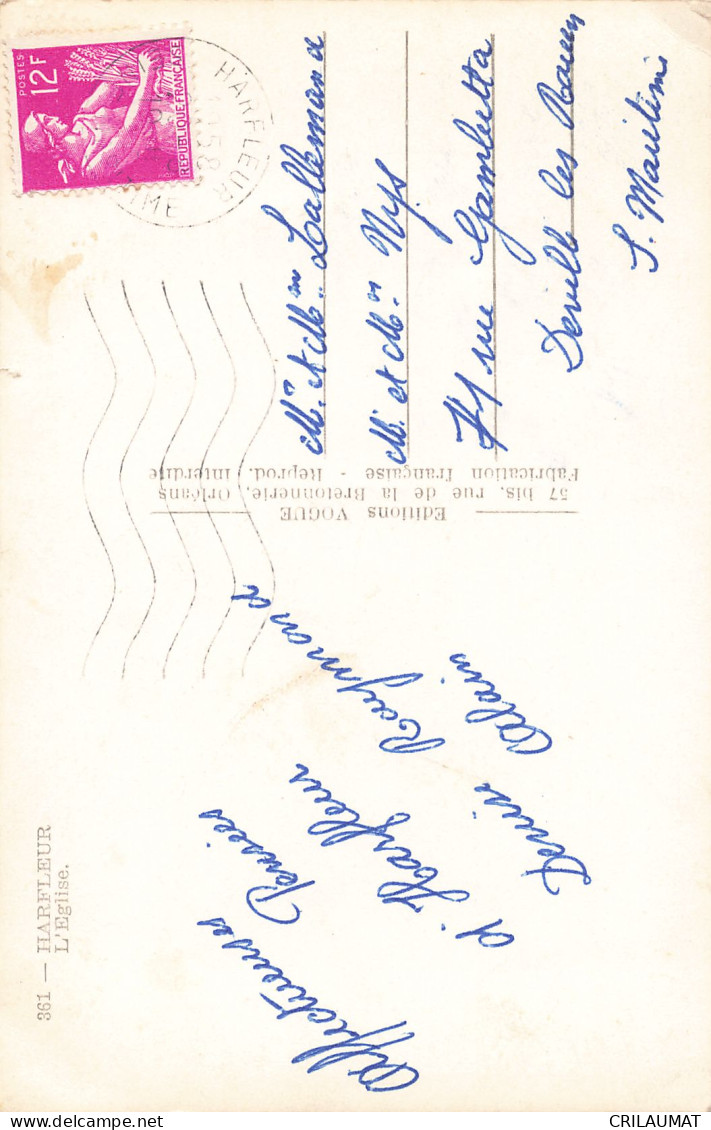 361 — HARFLEUR
L'Eglise.
Affectueuses Pensées
d'Harfleur Raymond
Denise Alain
Editions VOGUE
57 bis, rue de la Bretonnerie, Orléans
Fabrication Française - Reprod. Interdite
POSTES
12F
REPUBLIQUE FRANÇAISE
HARFLEUR
1958
Mr et Mme Lallemand
Mr et Mme Nys
71 rue Gambetta
Deville les Rouen
S. Maritime
CRILAUMAT